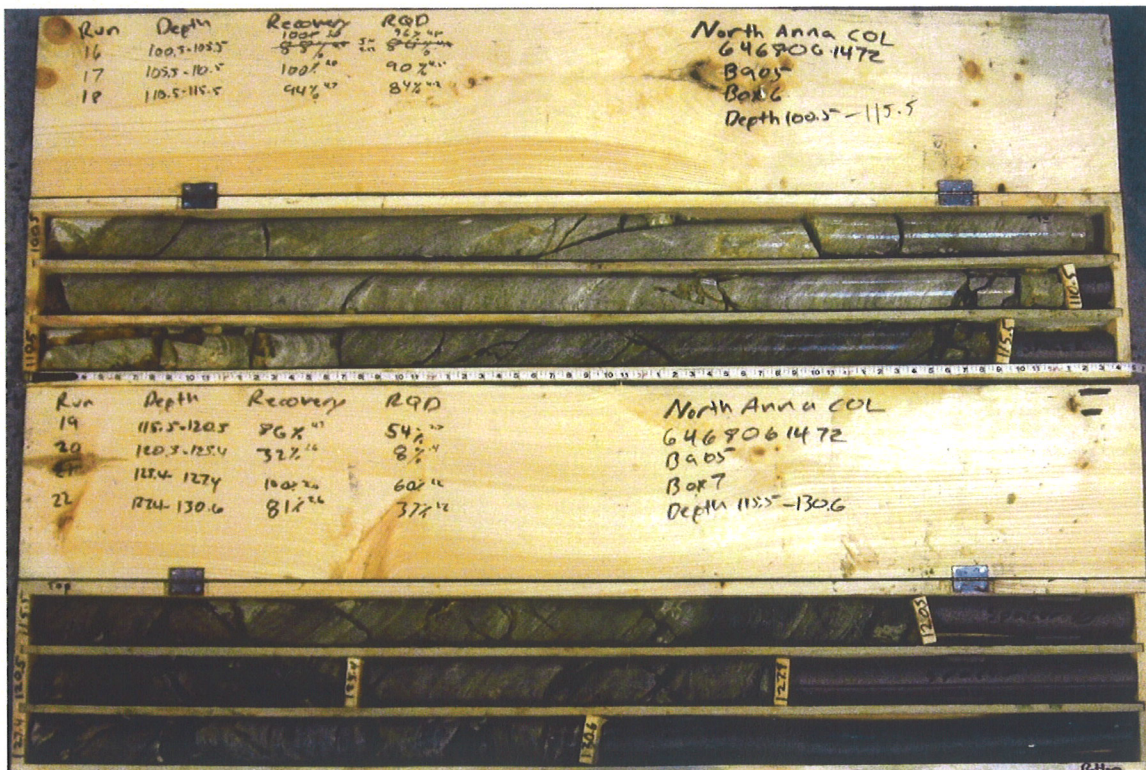 Run Depth Recovery RQD
16 100.5-105.5 100% 96%
17 105.5-110.5 100% 90%
18 110.5-115.5 94% 84%
North Anna COL
6468061472
B905
Box 6
Depth 100.5-115.5
100.5
110.5
110.5
115.5
Run Depth Recovery RQD
19 115.5-120.5 86% 54%
20 120.5-123.4 32% 8%
21 123.4-127.4 100% 60%
22 127.4-130.6 81% 37%
North Anna COL
6468061472
B905
Box 7
Depth 115.5-130.6
Top
115.5
120.5
120.5
123.4
127.4
127.4
130.6